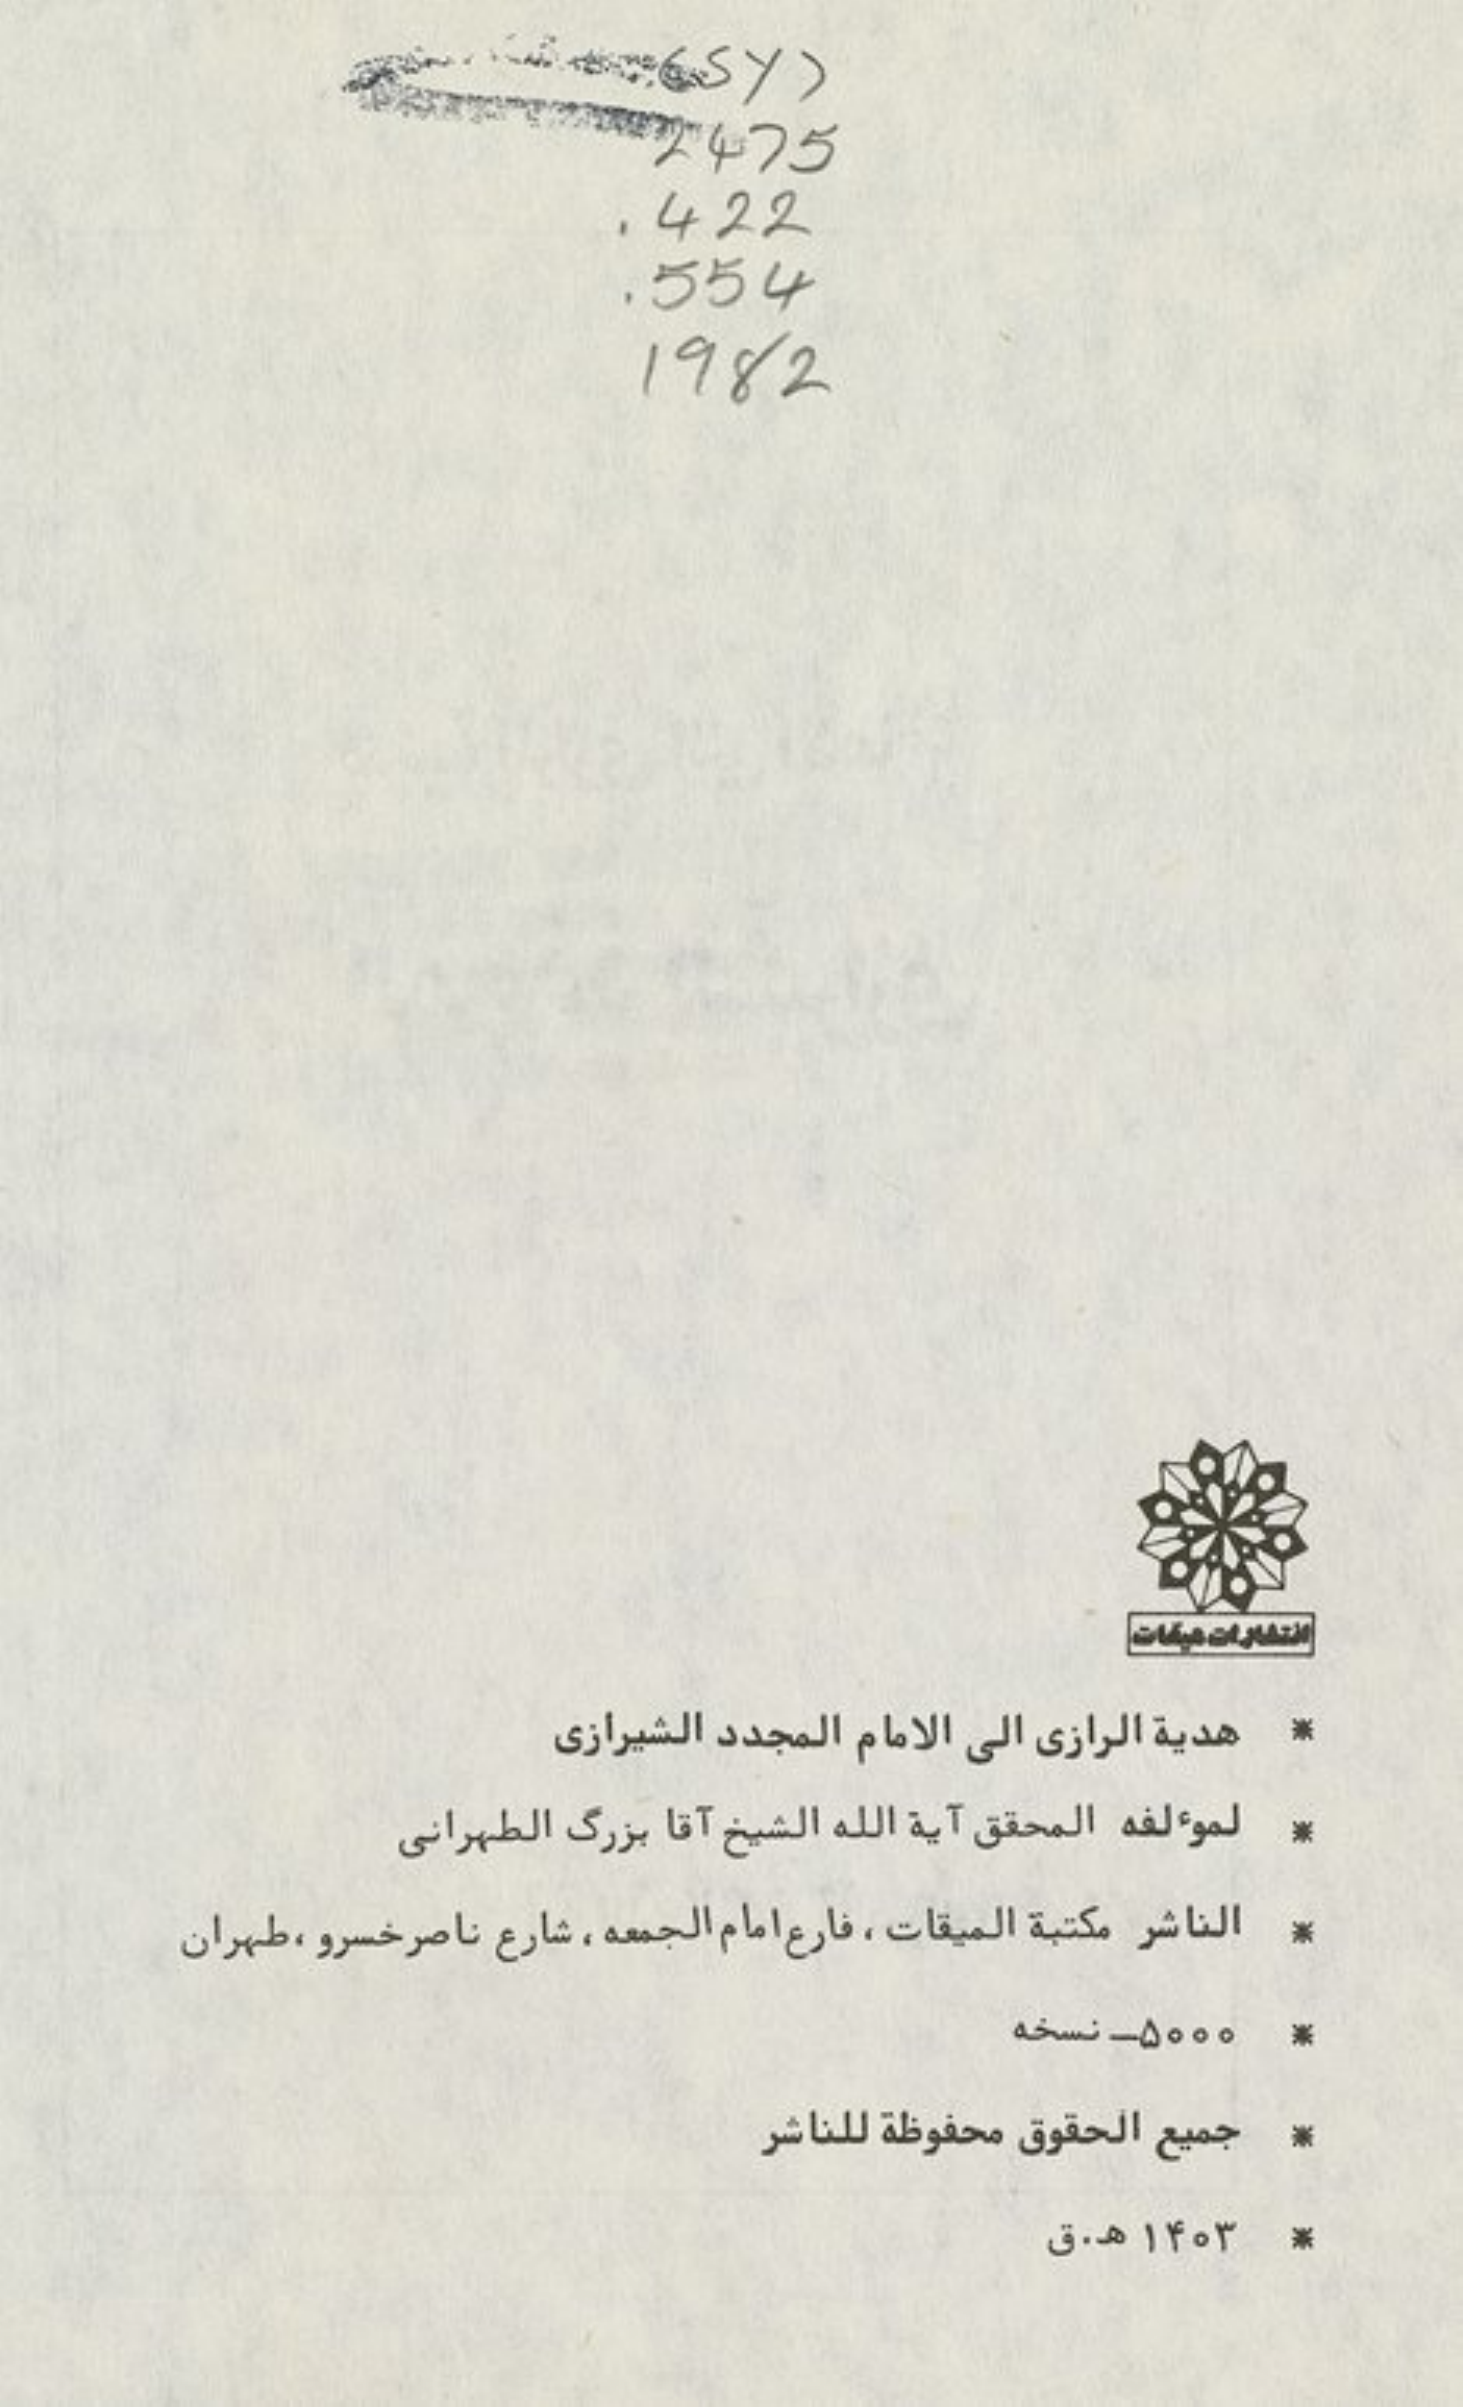 (SY)
2475
.422
.554
1982
انتشارات میقات
* هدية الرازی الی الامام المجدد الشیرازی
* لموءلفه المحقق آیة الله الشیخ آقا بزرگ الطهرانی
* الناشر مکتبة المیقات ، فارع امام الجمعه ، شارع ناصرخسرو ،طهران
* ۵۰۰۰ــ نسخه
* جمیع الحقوق محفوظة للناشر
* ۱۴۰۳ هـ.ق